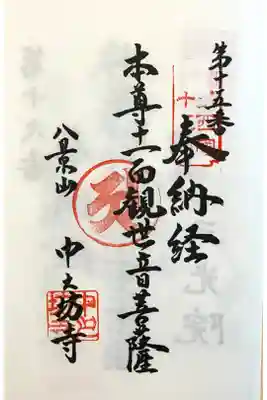 第十五番
奉納経
本尊十一面観世音菩薩
八景山 中之坊寺